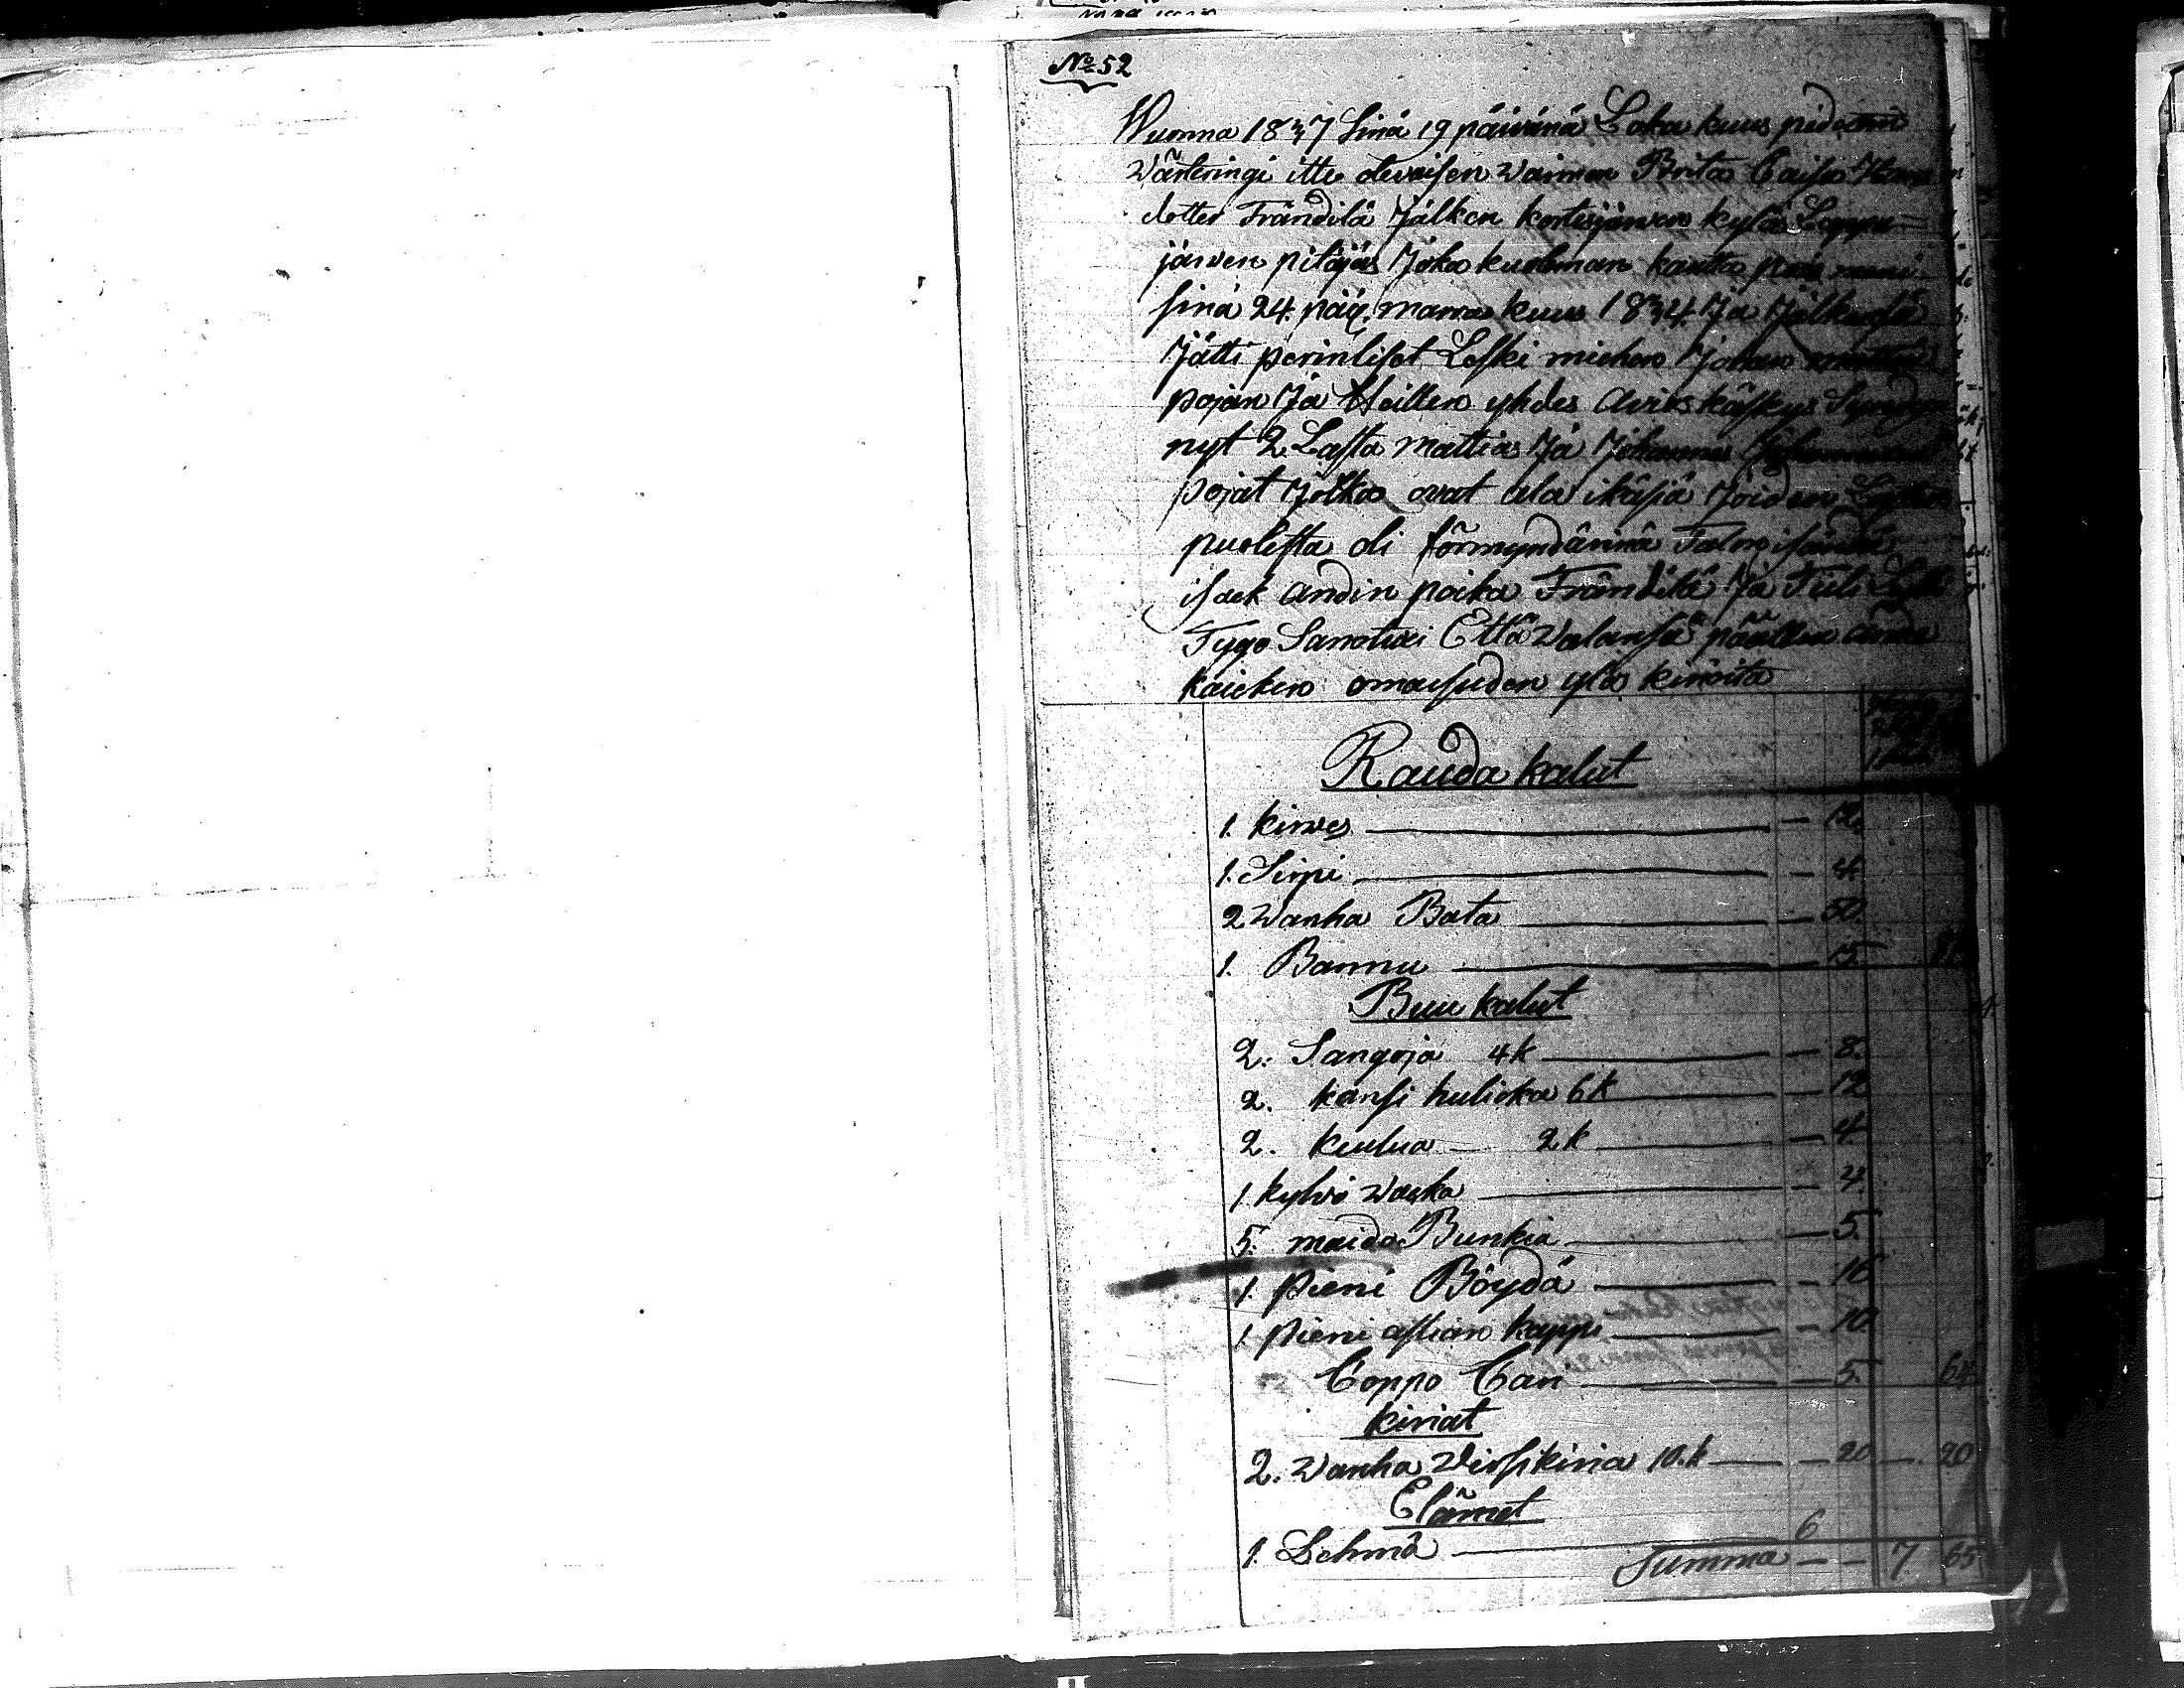 No 52
Wuonna 1837 Sinä 19 päivänä Loka kuus pidettin
Wärteringi itte olevaisen Waimon Brita Caisa
dotter Frändilä Jälken kortesjärwen kylä Lappa-
järwen pitäjäs Joka kuoleman kautta pois
sinä 24. päiv. marras kuus 1834. Ja Jälkensä
Jätti perinliset Leski miehen Johan
pojan Ja Heillen yhdes Avios käskys
nyt 2 Lasta Mattias Ja Johannes
pojat Jotka ovat ala ikäsiä Joiden Lasten
puolesta oli förmyndärinä Talon isändä
isack andin poika Frändilä Ja Tuli Leski
Tygö Sanottiin Että Walansa päällen anda
kaicken omaisuden ylös kirioita
Rauda kalut
1. kirwes — 12.
1. Sirpi — 4
2 Wanha Bata — 50.
1. Bannu — 15.
Buu kalut
2. Sangoja 4k — 8.
2. kansi kulicka 6k — 12
2. kiulua — 2k — 4.
1. kylvö Wacka — 4.
5. maido Bunkia — 5.
1. pieni Böydä — 16
1. pieni astian kappi — 10
Coppo Can — 5. 64
kiriat
2. Wanha Virsikiria 10.k — 20 — 20
Elämet
1. Lehmä — 6
Summa — 7 65